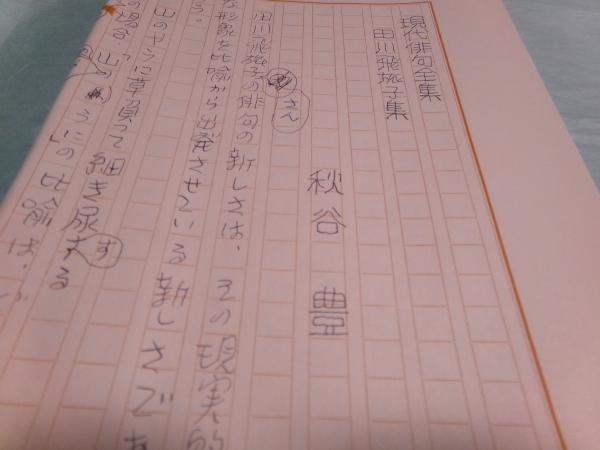 現代俳句全集
田川飛旅子集
秋谷 豊
田川飛旅子さんの俳句の新しさは、その現実的
な形象を比喩から出発させている新しさであ
山のやうに草負って細き尿する
の場合、「山のやうに」の比喩は、